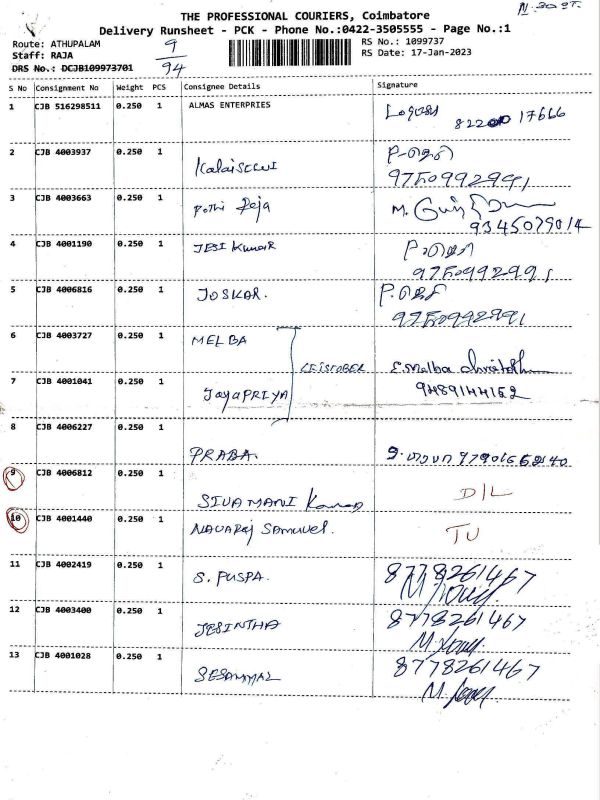 THE PROFESSIONAL COURIERS, Coimbatore
Delivery Runsheet - PCK - Phone No.:0422-3505555 - Page No.:1
Route: ATHUPALAM 9 RS No.: 1099737
Staff: RAJA 94 RS Date: 17-Jan-2023
DRS No.: DCJB109973701
S No Consignment No Weight PCS Consignee Details Signature
1 CJB 516298511 0.250 1 ALMAS ENTERPRIES 17666
2 CJB 4003937 0.250 1 KalaiSELVI
9750992991
3 CJB 4003663 0.250 1 Pothi Raja M.
9345079014
4 CJB 4001190 0.250 1 JESI Kumar
9750992991
5 CJB 4006816 0.250 1 JOSKAR.
9750992991
6 CJB 4003727 0.250 1 MELBA
E. Melba
7 CJB 4001041 0.250 1 JayaPRIYA 9489144152
8 CJB 4006227 0.250 1
PRABA.
9 CJB 4006812 0.250 1
SIVAMANI Kumar D/L
10 CJB 4001440 0.250 1 NAVARaj Samuvel. TU
11 CJB 4002419 0.250 1 S. PUSPA. 8778261467
12 CJB 4003400 0.250 1 JESINTHA 8778261467
13 CJB 4001028 0.250 1 SESAMMAL 8778261467